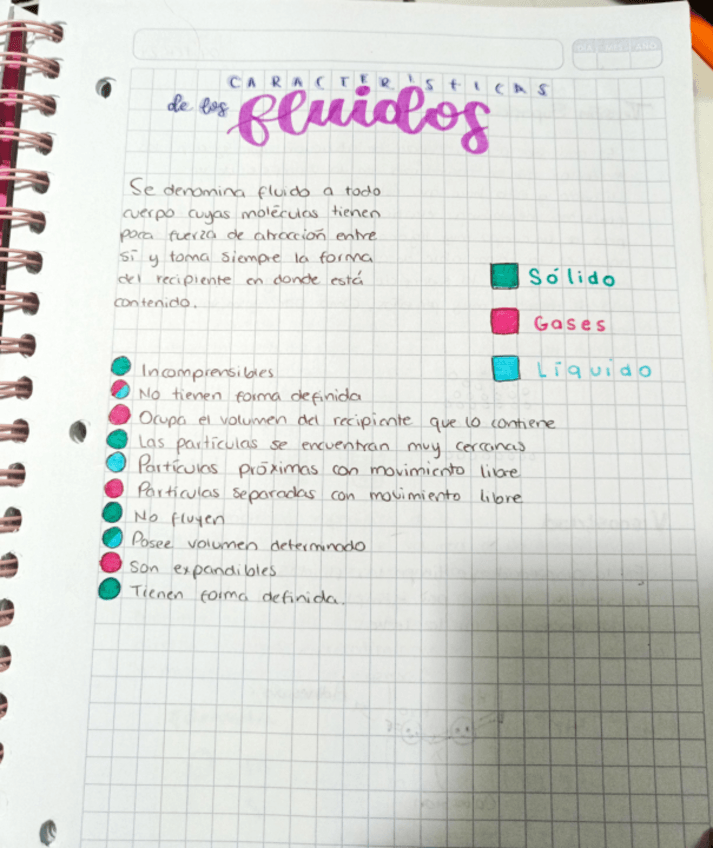 CARACTERÍSTICAS
de los fluidos
Se denomina fluido a todo
cuerpo cuyas moléculas tienen
poca fuerza de atracción entre
sí y toma siempre la forma
del recipiente en donde está
contenido.
Sólido
Gases
Líquido
Incomprensibles
No tienen forma definida
Ocupa el volumen del recipiente que lo contiene
Las partículas se encuentran muy cercanas
Partículas próximas con movimiento libre
Partículas separadas con movimiento libre
No fluyen
Posee volumen determinado
Son expandibles
Tienen forma definida.